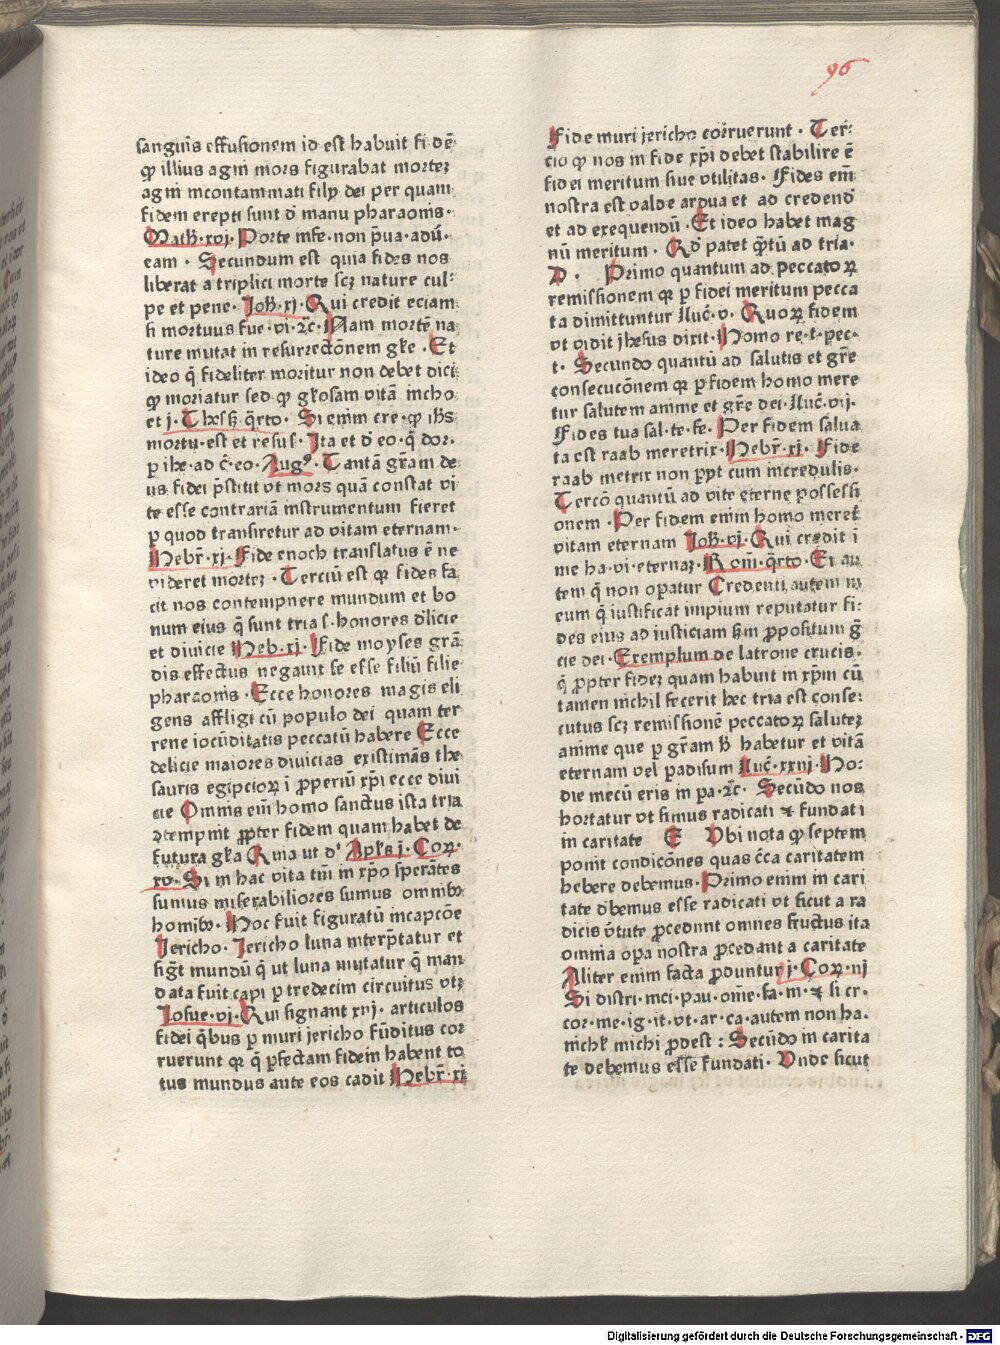 96
sanguīs effusionem id est habuit fi dē
qꝫ illius agni mors figurabat morteꝫ
agni incontaminati filij dei per quam
fidem erepti sunt d̄ manu pharaonis·
Math·xvj·Porte infe·non p̄ua·adū·
eam · Secundum est quia fides nos
liberat a triplici morte scꝫ nature cul
pe et pene· Joh·xj·Qui credit eciam
si mortuus fue·vi·ꝛc̄·Nam mortē na
ture mutat in resurrectōnem gl̄e ·Et
ideo q̄ fideliter moritur non debet dici
qꝫ moriatur sed qꝫ gl̄osam vitā incho
et j·Thess̄ q̄rto· Si enim cre·qꝫ ih̄s
mortu·est et resus·Ita et d̄ eo·q̄ dor·
p ihe·ad c̄·eo·Augꝰ·Tantā gr̄am de
us fidei p̄stitit vt mors quā constat vi
te esse contrariā instrumentum fieret
p quod transiretur ad vitam eternam·
Hebr̄·xj·Fide enoch translatus ē ne
videret morteꝫ·Terciū est qꝫ fides fa
cit nos contempnere mundum et bo
num eius q̄ sunt tria s·honores d̄licie
et diuicie Heb·xj·Fide moyses grā
dis effectus negauit se esse filiū filie
pharaonis·Ecce honores magis eli
gens affligi cū populo dei quam ter
rene iocūditatis peccatū habere Ecce
delicie maiores diuicias existimās the
sauris egipcioꝝ īproperiū xp̄i ecce diui
cie Omnis em̄ homo sanctus ista tria
ꝯtempnit propter fidem quam habet de
futura gl̄a Quia ut dꝰ Apl̄s j·Coꝝ·
xv·Si in hac vita tm̄ in xp̄o sperātes
sumus miserabiliores sumus omnibꝫ
homībꝫ·Hoc fuit figuratū incapcōe
Jericho·Jericho luna interp̄tatur et
sigt mundū q̄ ut luna mutatur q̄ man
data fuit capi p tredecim circuitus vtꝫ
Josue·vj·Qui signant xiij·articulos
fidei q̄bus p muri jericho fūditus cor
ruerunt qꝫ q̄ pfectam fidem habent to
tus mundus ante eos cadit Hebr̄·xj
Fide muri jericho corruerunt · Ter
cio qꝫ nos in fide xp̄i debet stabilire ē
fidei meritum siue vtilitas· Fides em̄
nostra est valde ardua et ad credend̄
et ad exequendū·Et ideo habet mag
nū meritum · Qd̄ patet q̄tū ad tria·
D · Primo quantum ad peccatoꝝ
remissionem qꝫ p fidei meritum pecca
ta dimittuntur Luc̄·v·Quoꝝ fidem
vt vidit jhesus dixit·Homo re·t·pec·
t·Secundo quantū ad salutis et gr̄e
consecucōnem qꝫ p fidem homo mere
tur salutem anime et gr̄e dei·Luc̄·vij·
Fides tua sal·te·fe·Per fidem salua
ta est raab meretrix·Hebr̄·xj· Fide
raab metrix non p̄yt cum incredulis·
Tercō quantū ad vite eterne possessi
onem ·Per fidem enim homo meret̄
vitam eternam Joh·vj·Qui credit ī
me ha·vi·eternaꝫ·Rom̄·q̄rto·Ei au
tem q̄ non opatur Credenti autem in
eum q̄ iustificat impium reputatur fi
des eius ad iusticiam s̄m ppositum ḡ
cie dei·Exemplum de latrone crucis·
q̄ ppter fideꝫ quam habuit in xp̄m cū
tamen nichil fecerit hec tria est conse
cutus scꝫ remissionē peccatoꝝ saluteꝫ
anīme que p gr̄am h̄ habetur et vitā
eternam vel padisum Luc̄·xxiij·Ho
die mecū eris in pa·ꝛc̄· Secūdo nos
hortatur vt simus radicati ⁊ fundati
in caritate E Vbi nota qꝫ septem
ponit condicōnes quas c̄ca caritatem
hebere debemus·Primo enim in cari
tate d̄bemus esse radicati vt sicut a ra
dicis v̄tute pcedunt omnes fructus ita
omnia opa nostra pcedant a caritate
Aliter enim facta pduntur j·Coꝝ·iij
Si distri·mci·pau·om̄e·fa·m·⁊ si cr·
cor·me·ig·it·vt·ar·ca·autem non ha·
nichl̄ michi pdest : Secūdo in carita
te debemus esse fundati· Vnde sicut
Digitalisierung gefördert durch die Deutsche Forschungsgemeinschaft - DFG